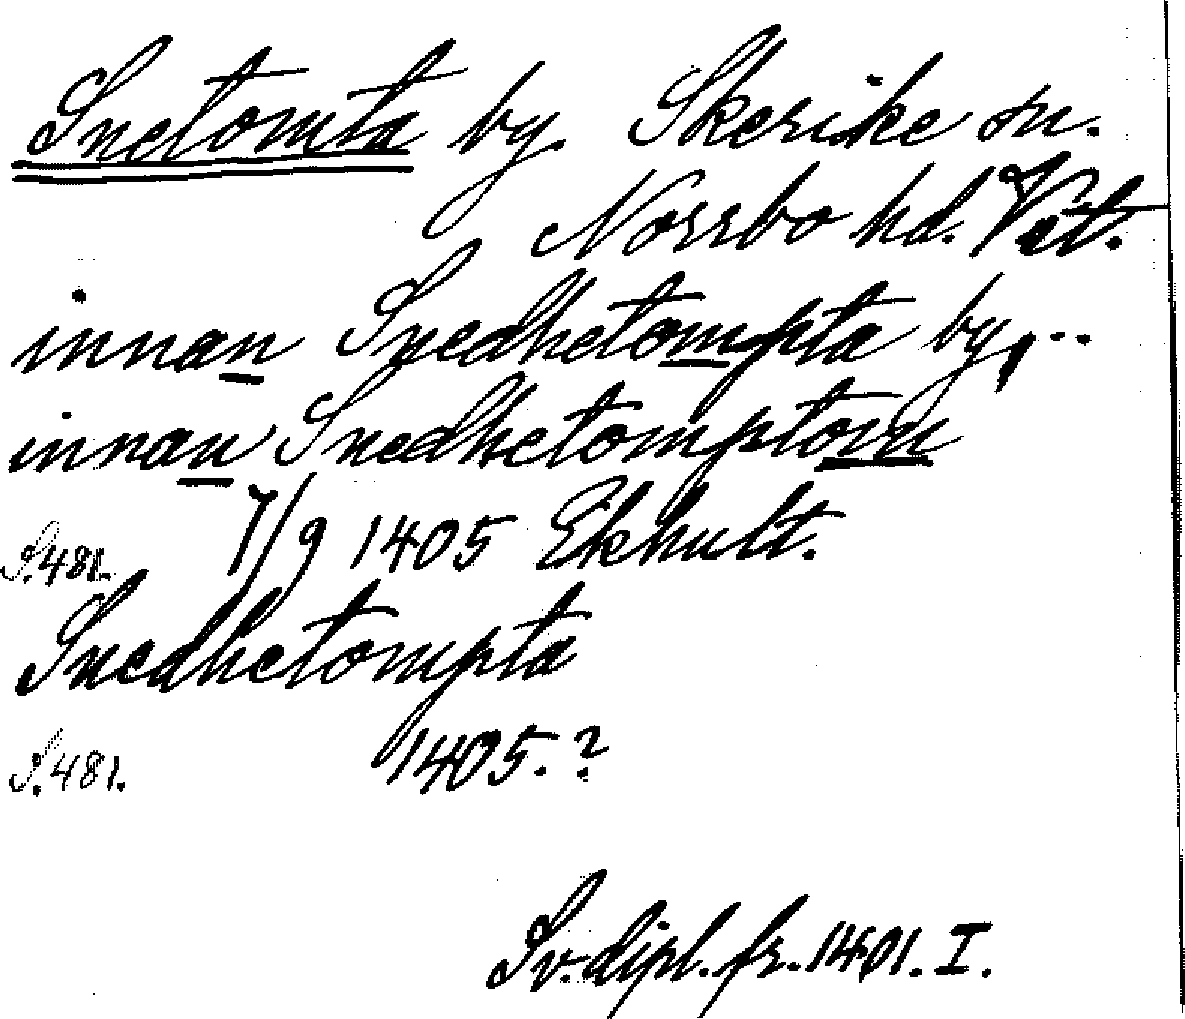 Snetomta by. Skerike sn.
Norrbo hd. Vstl.
innan Snedhetompta by, ..
innan Snedhetomptom
S.481. 7/9 1405 Ekhult.
Snedhetompta
S.481. 1405.?
Sv. dipl. fr. 1401. I.